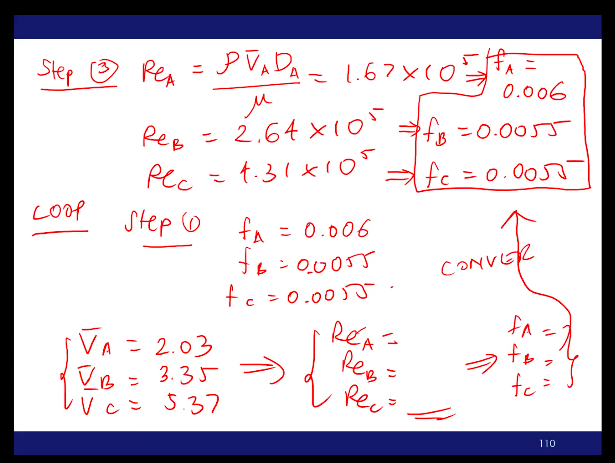 Step ③ Re_A = ρ V̄_A D_A / μ = 1.67 × 10^5 ⇒ f_A = 0.006
Re_B = 2.64 × 10^5 ⇒ f_B = 0.0055
Re_C = 4.31 × 10^5 ⇒ f_C = 0.0055
LOOP Step ①
f_A = 0.006
f_B = 0.0055
f_C = 0.0055
CONVER
V̄_A = 2.03 ⇒ Re_A = ⇒ f_A =
V̄_B = 3.35 Re_B = f_B =
V̄_C = 5.37 Re_C = f_C =
110